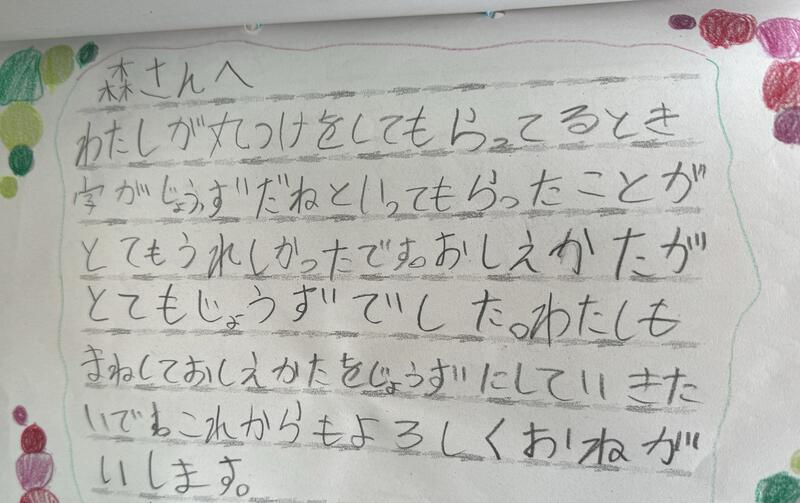 森さんへ
わたしが丸つけをしてもらってるとき
字がじょうずだねといってもらったことが
とてもうれしかったです。おしえかたが
とてもじょうずでした。わたしも
まねしておしえかたをじょうずにしていきた
いですこれからもよろしくおねが
いします。